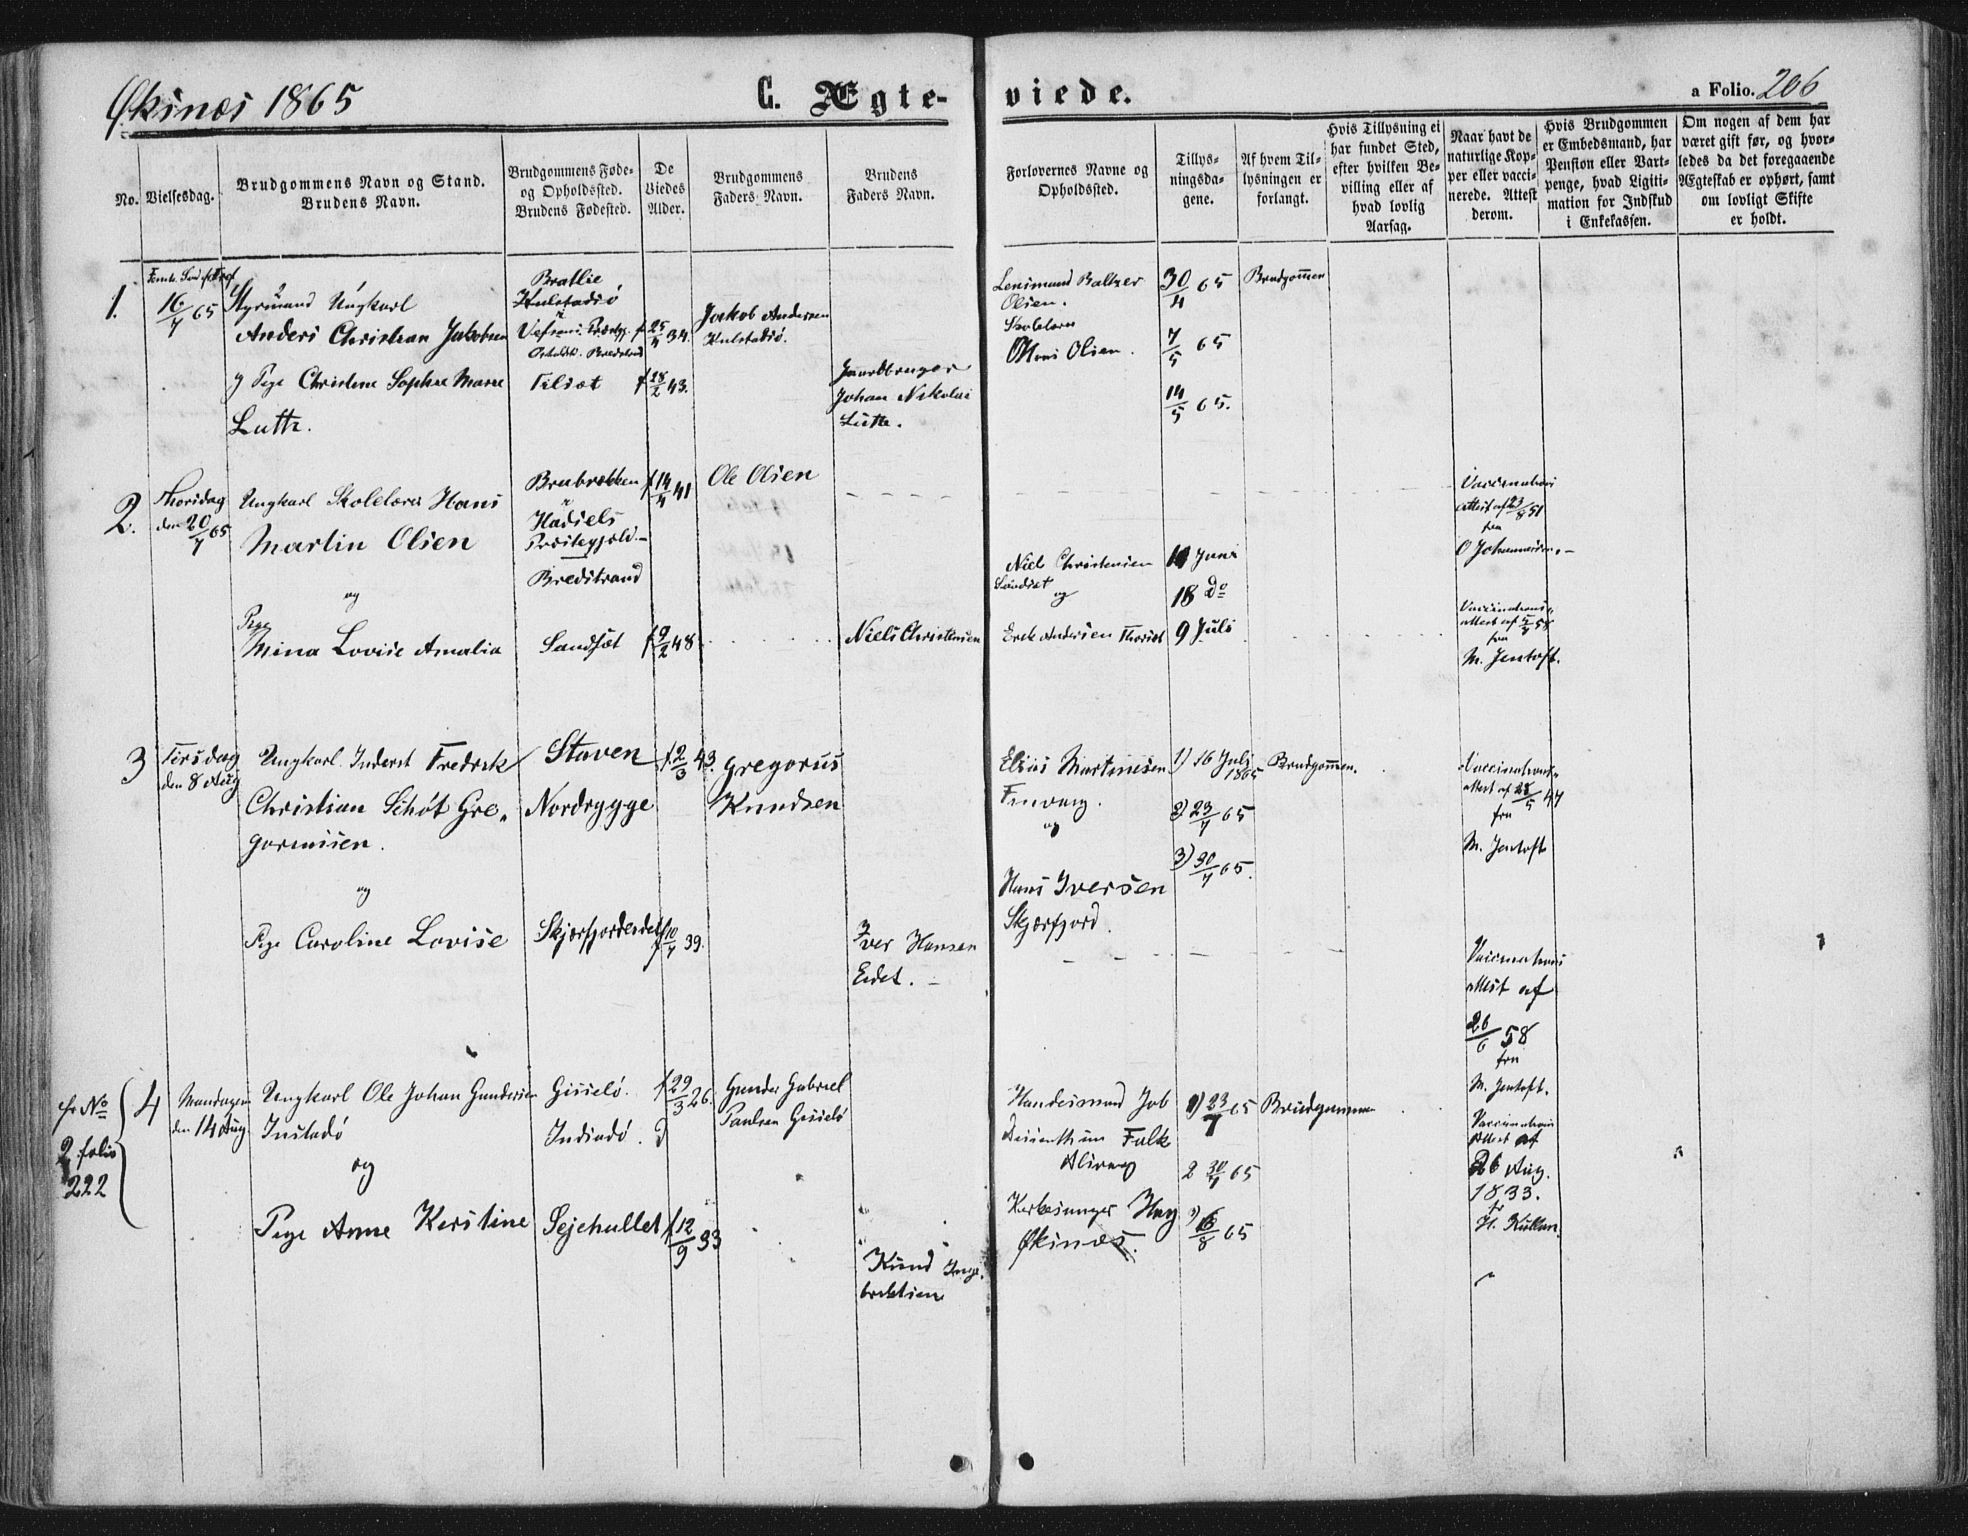 Øksnæs 1865
C. Ægte-
viede.
a Folio. 206
No.
Vielsesdag.
Brudgommens Navn og Stand.
Brudens Navn.
Brudgommens Føde-
og Opholdssted.
Brudens Fødested.
De
Viedes
Alder.
Brudgommens
Faders Navn.
Brudens
Faders Navn.
Forlovernes Navne og
Opholdssted.
Tillys-
ningsda-
gene.
Af hvem Til-
lysningen er
forlangt.
Hvis Tillysning ei
har fundet Sted,
efter hvilken Be-
villing eller af
hvad lovlig
Aarsag.
Naar havt de
naturlige Kop-
per eller vacci-
nerede. Attest
derom.
Hvis Brudgommen
er Embedsmand, har
Pension eller Vart-
penge, hvad Ligiti-
mation for Indskud
i Enkekassen.
Om nogen af dem har
været gift før, og hvor-
ledes da det foregaaende
Ægteskab er ophørt, samt
om lovligt Skifte
er holdt.
1.
16/7 65
Styrmand Ungkarl
Anders Christian Jakobsen
g Pige Christine Sophie Marie
Lutth.
Bratlie
Kulstadsø
Tilsæt
f 25/4 34.
f 18/2 43.
Jakob Andersen
Kulstadsø.
Jordbruger
Johan Nikolai
Lutth.
Lensmand Baltzer
Olsen.
Skolelærer
Olsen.
30/4 65
7/5 65
14/5 65.
Brudgommen
2.
Thorsdag
den 20/7 65
Ungkarl Skolelærer Hans
Martin Olsen
og
Pige
Mina Lovise Amalia
Hadsels
Præstegjeld.-
Bredstrand
Sandsæt
f 14/4 41
f 9/2 48
Ole Olsen
Niels Christensen
Niels Christensen
Sandset
og
Erik Andersen
11 Juni
18 Do
9 Juli
Vaccinations
attest af 23/8 51
fra
O Johannesen.-
Vaccinations-
attest af 5/7 58
fra
M. Jentoft.
3
Tirsdag
den 8 Aug
Ungkarl Inderst Fredrik
Christian Schøt Gre-
goriussen.
og
Pige Caroline Lovise
Staven
Nordrygge
Skjærfjordeidet
f 2/3 43.
f 10/7 39.
Gregorius
Knudsen
Iver Hansen
Eidet. -
Elias Martinesen
Finvaag.
og
Hans Iversen
Skjærfjord.
1) 16 Juli
1865
2) 23/7 65
3) 30/7 65.
Brudgommen.
Vaccinations-
attest af 28/5 47
fra
M. Jentoft
Vaccinations
attest af
26/6 58
fra
M. Jentoft.
fr No
2 folio
222
4
Mandagen
den 14 Aug
Ungkarl Ole Johan Gundersen
Instadø
og
Pige Anne Kirstine
Gisselø.
Indsadø.
Sejehullet
f 29/3 26.
f 12/9 33
Gunder Gabriel
Paulsen Gisselø
Knud Inge-
brektsen
Handelsmand Job
Falk
Alsvaag
Kirkesanger Hay
Øksnæs.
1) 23/7 65
2 30/7 65
3) 6/8 65
Brudgommen
Vaccinations
Attest af
26 Aug.
1833.
fr